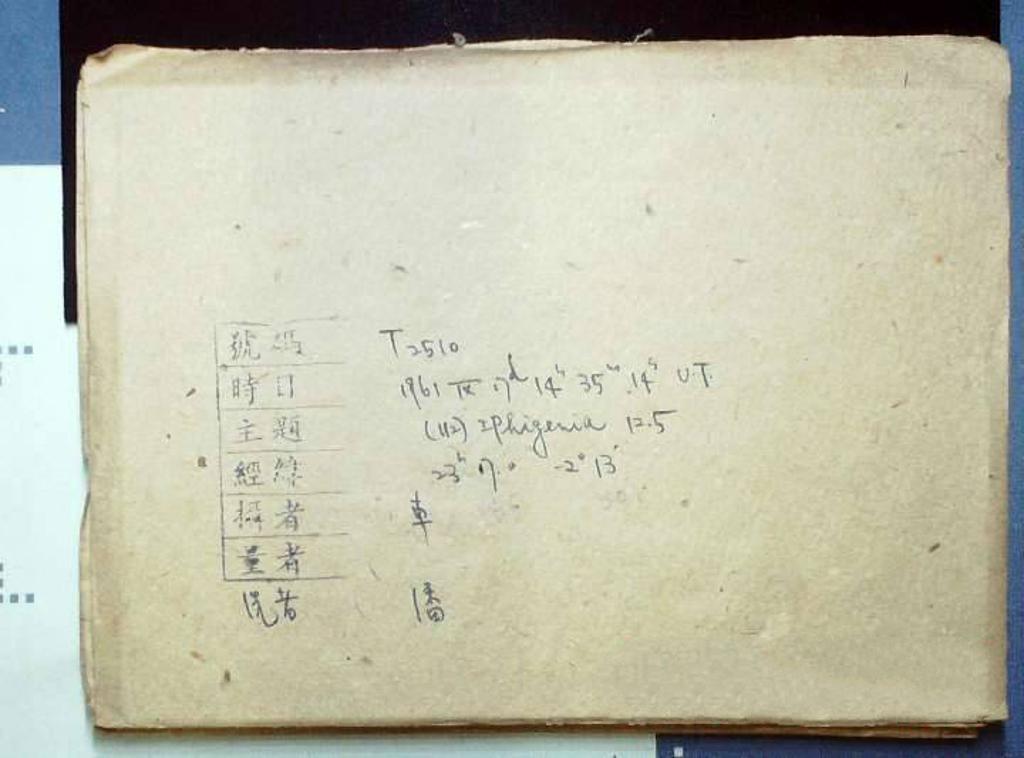 號碼 T2510
時日 1961 IX 17ᵈ 14ʰ 35ᵐ 14ˢ U.T.
主題 (112) Iphigenia 12.5
經緯 23ʰ 17.0 -2° 13′
攝者 車
量者
潘